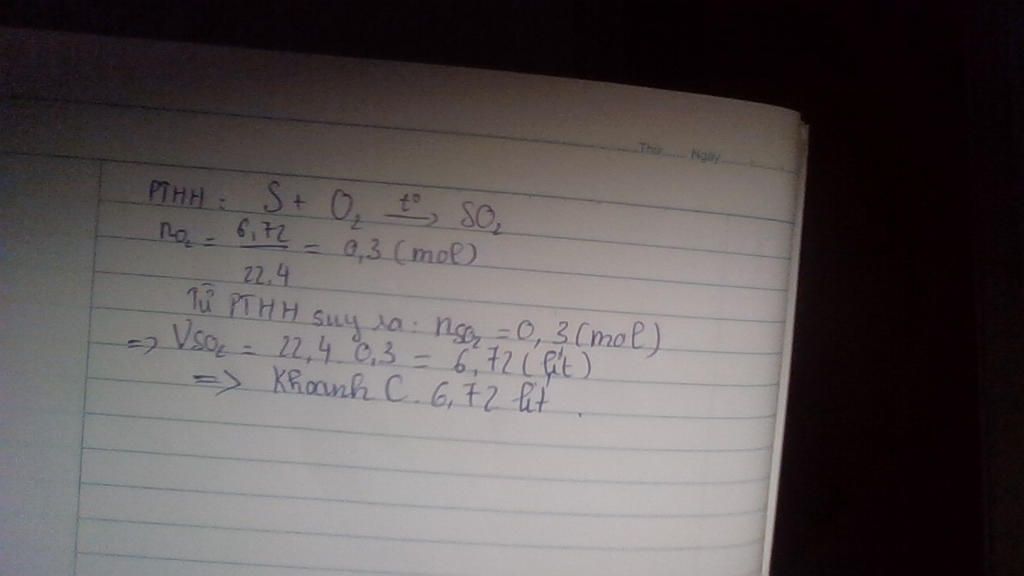 Thứ Ngày
PTHH: S + O₂ t° → SO₂
nO₂ = 6,72 / 22,4 = 0,3 (mol)
Từ PTHH suy ra: nSO₂ = 0,3 (mol)
=> VSO₂ = 22,4 . 0,3 = 6,72 (lít)
=> Khoanh C. 6,72 lít.